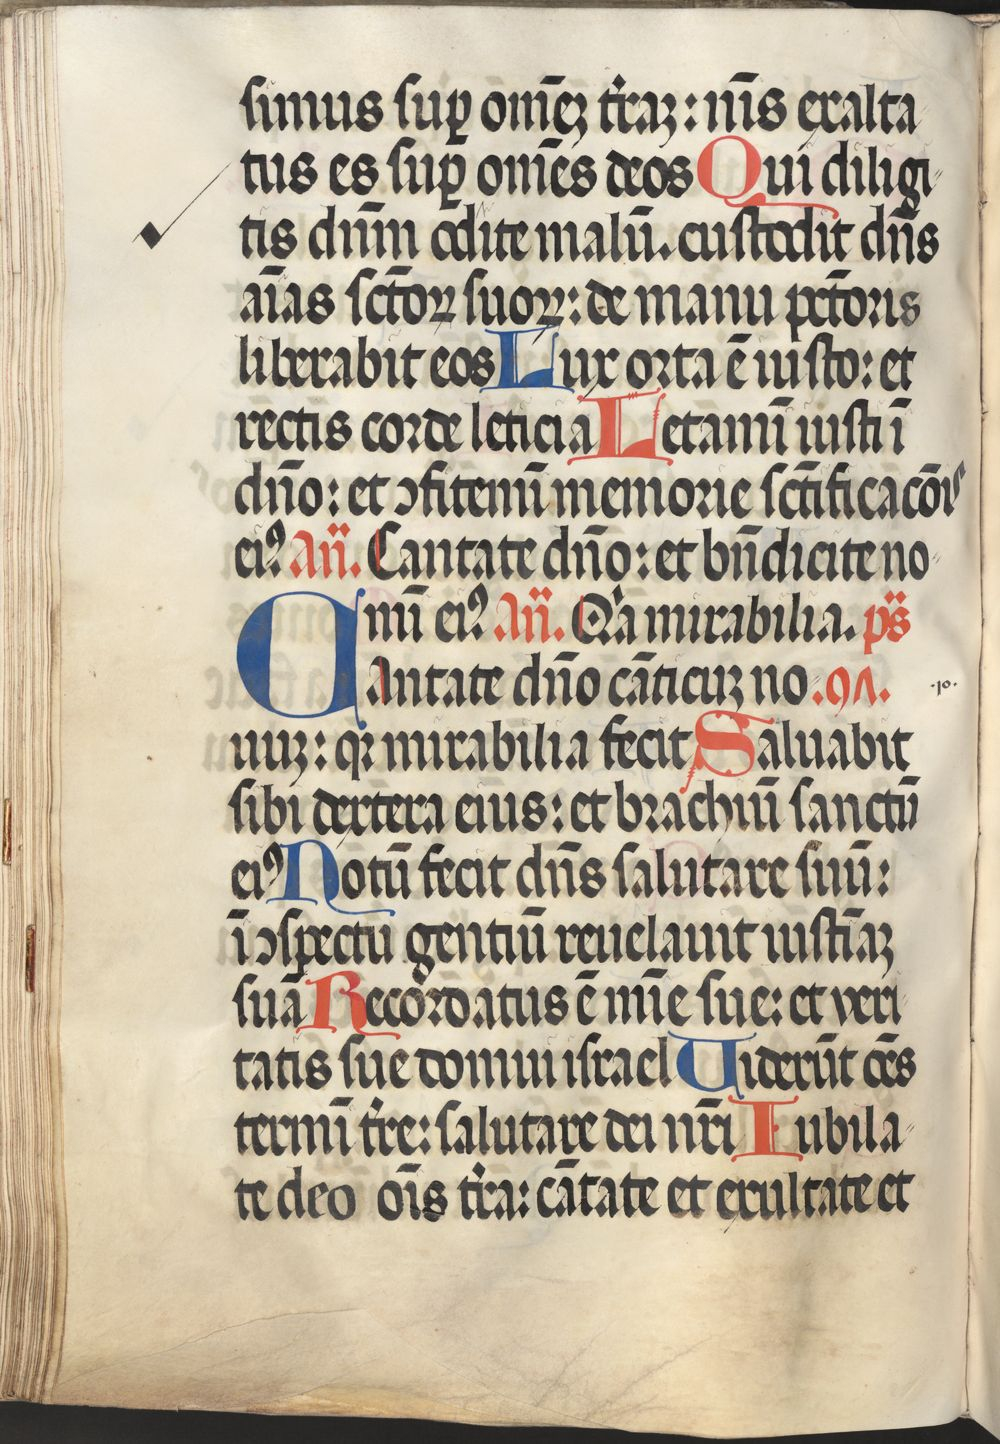 simus sup om̄eꝫ t̉raꝫ: nīs exalta
tus es sup om̄es deos Qui diligi
tis dn̄m odite malū. custodit dn̄s
aīas sc̄toꝝ suoꝝ: de manu pc̄toris
liberabit eos Lux orta ē iusto: et
rectis corde leticia Letamī iusti ī
dn̄o: et ꝯfitemī memorie sc̄tificacōīs
eiꝰ An̄. Cantate dn̄o: et bn̄dicite no
mī eiꝰ An̄. Q̉a mirabilia. ps̄
Cantate dn̄o cāticuꝫ no .97. .10.
uuꝫ: qꝛ mirabilia fecit Saluabit
sibi dextera eius: et brachiū sanctū
eiꝰ Notū fecit dn̄s salutare suū:
ī ꝯspectu gentiū reuelauit iustīaꝫ
suā Recordatus ē mīe sue: et veri
tatis sue domui israel Uiderūt oēs
termī t̉re: salutare dei nr̄i Iubila
te deo oīs t̉ra: cātate et exultate et